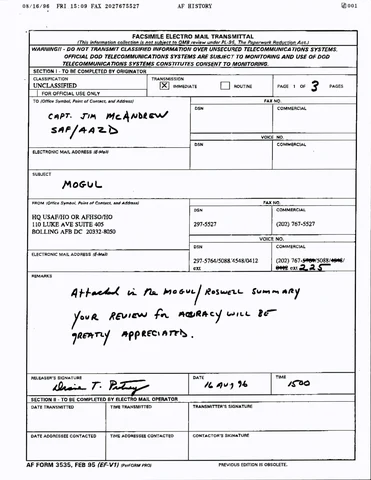 08/16/96 FRI 15:09 FAX 2027675527 AF HISTORY 001
FACSIMILE ELECTRO MAIL TRANSMITTAL
(This information collection is not subject to OMB review under PL-95, The Paperwork Reduction Act.)
WARNING!! - DO NOT TRANSMIT CLASSIFIED INFORMATION OVER UNSECURED TELECOMMUNICATIONS SYSTEMS.
OFFICIAL DOD TELECOMMUNICATIONS SYSTEMS ARE SUBJECT TO MONITORING AND USE OF DOD
TELECOMMUNICATIONS SYSTEMS CONSTITUTES CONSENT TO MONITORING.
SECTION I - TO BE COMPLETED BY ORIGINATOR
CLASSIFICATION TRANSMISSION
UNCLASSIFIED X IMMEDIATE ROUTINE PAGE 1 OF 3 PAGES
FOR OFFICIAL USE ONLY
TO (Office Symbol, Point of Contact, and Address) FAX NO.
DSN COMMERCIAL
CAPT. JIM McANDREW
SAF/AAZD
VOICE NO.
DSN COMMERCIAL
ELECTRONIC MAIL ADDRESS (E-Mail)
SUBJECT
MOGUL
FROM (Office Symbol, Point of Contact, and Address) FAX NO.
DSN COMMERCIAL
HQ USAF/HO OR AFHSO/HO
110 LUKE AVE SUITE 405
BOLLING AFB DC 20332-8050
297-5527 (202) 767-5527
VOICE NO.
DSN COMMERCIAL
ELECTRONIC MAIL ADDRESS (E-Mail)
297-5764/5088/4548/0412 (202) 767- /5088/
ext ext 225
REMARKS
Attached is the MOGUL/ROSWELL SUMMARY
YOUR REVIEW for ACCURACY WILL BE
GREATLY APPRECIATED.
RELEASER'S SIGNATURE DATE TIME
T. 16 Aug 96 1500
SECTION II - TO BE COMPLETED BY ELECTRO MAIL OPERATOR
DATE TRANSMITTED TIME TRANSMITTED TRANSMITTER'S SIGNATURE
DATE ADDRESSEE CONTACTED TIME ADDRESSEE CONTACTED CONTACTOR'S SIGNATURE
AF FORM 3535, FEB 95 (EF-V1) (PerFORM PRO) PREVIOUS EDITION IS OBSOLETE.